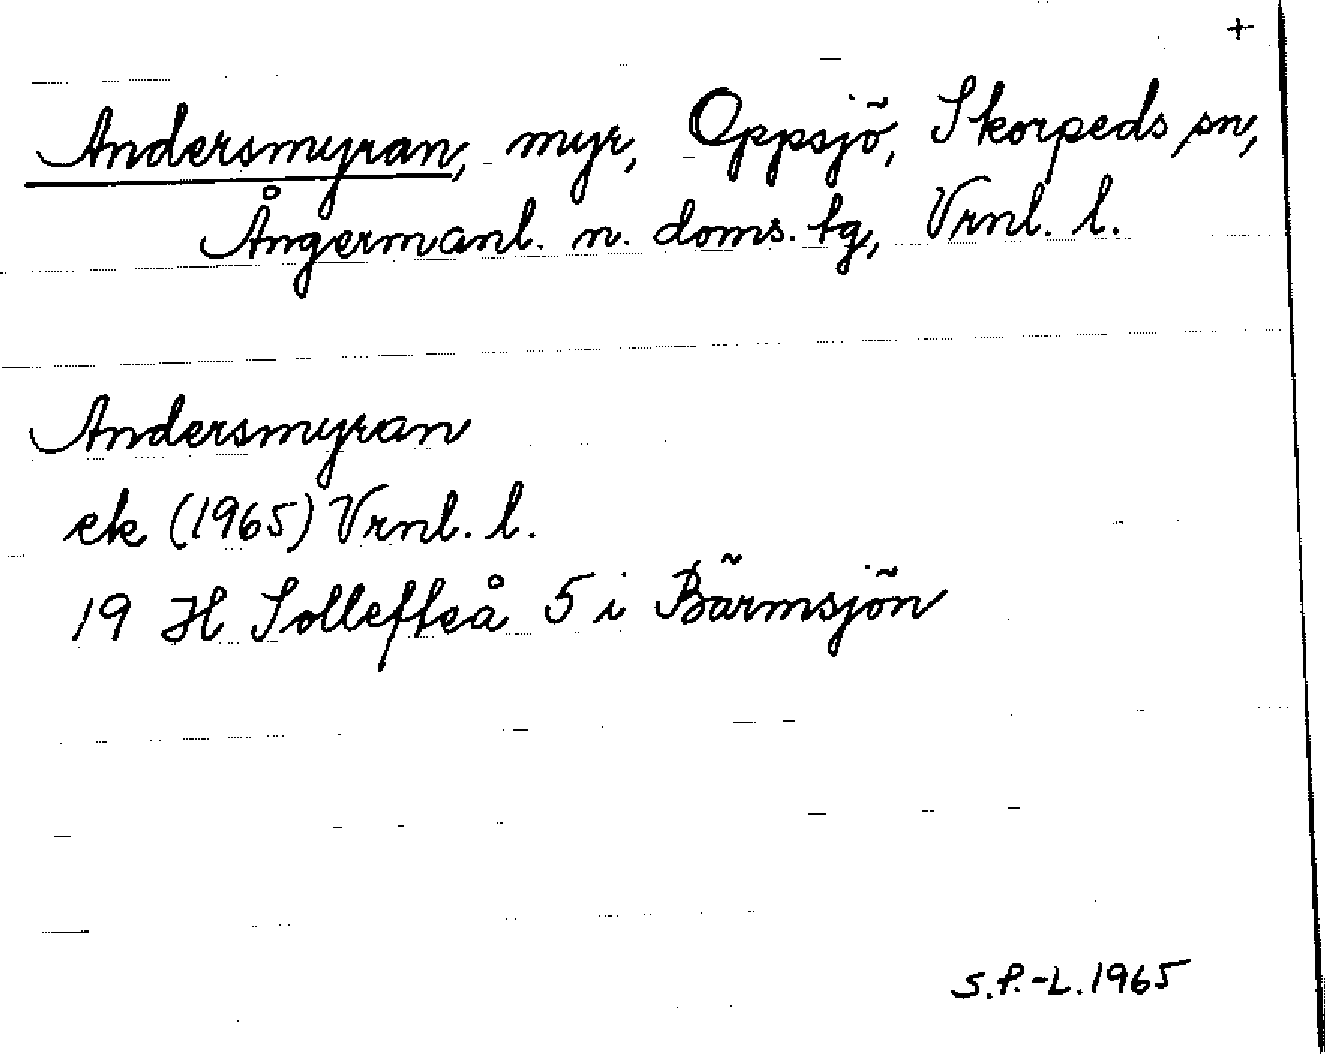 +
Andersmyran, myr, Oppsjö, Skorpeds sn,
Ångermanl. n. doms. tg, Vrnl. l.
Andersmyran
ek (1965) Vrnl. l.
19 H Sollefteå 5 i Bärmsjön
S.P.-L. 1965